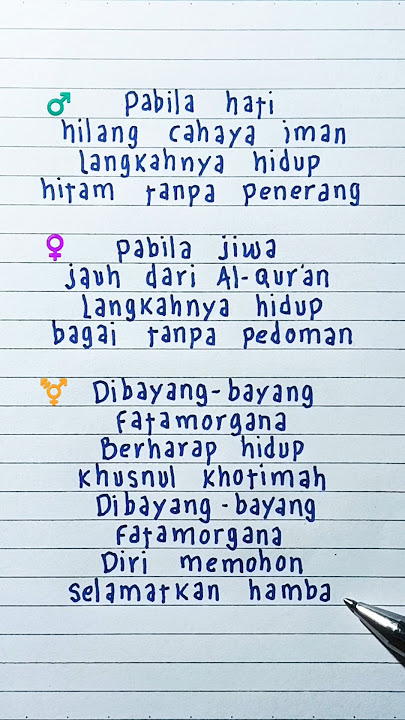 ♂ Pabila hati
hilang cahaya iman
Langkahnya hidup
hitam tanpa penerang
♀ Pabila jiwa
jauh dari Al-Qur'an
Langkahnya hidup
bagai tanpa pedoman
⚧ Dibayang-bayang
Fatamorgana
Berharap hidup
khusnul khotimah
Dibayang-bayang
Fatamorgana
Diri memohon
selamatkan hamba